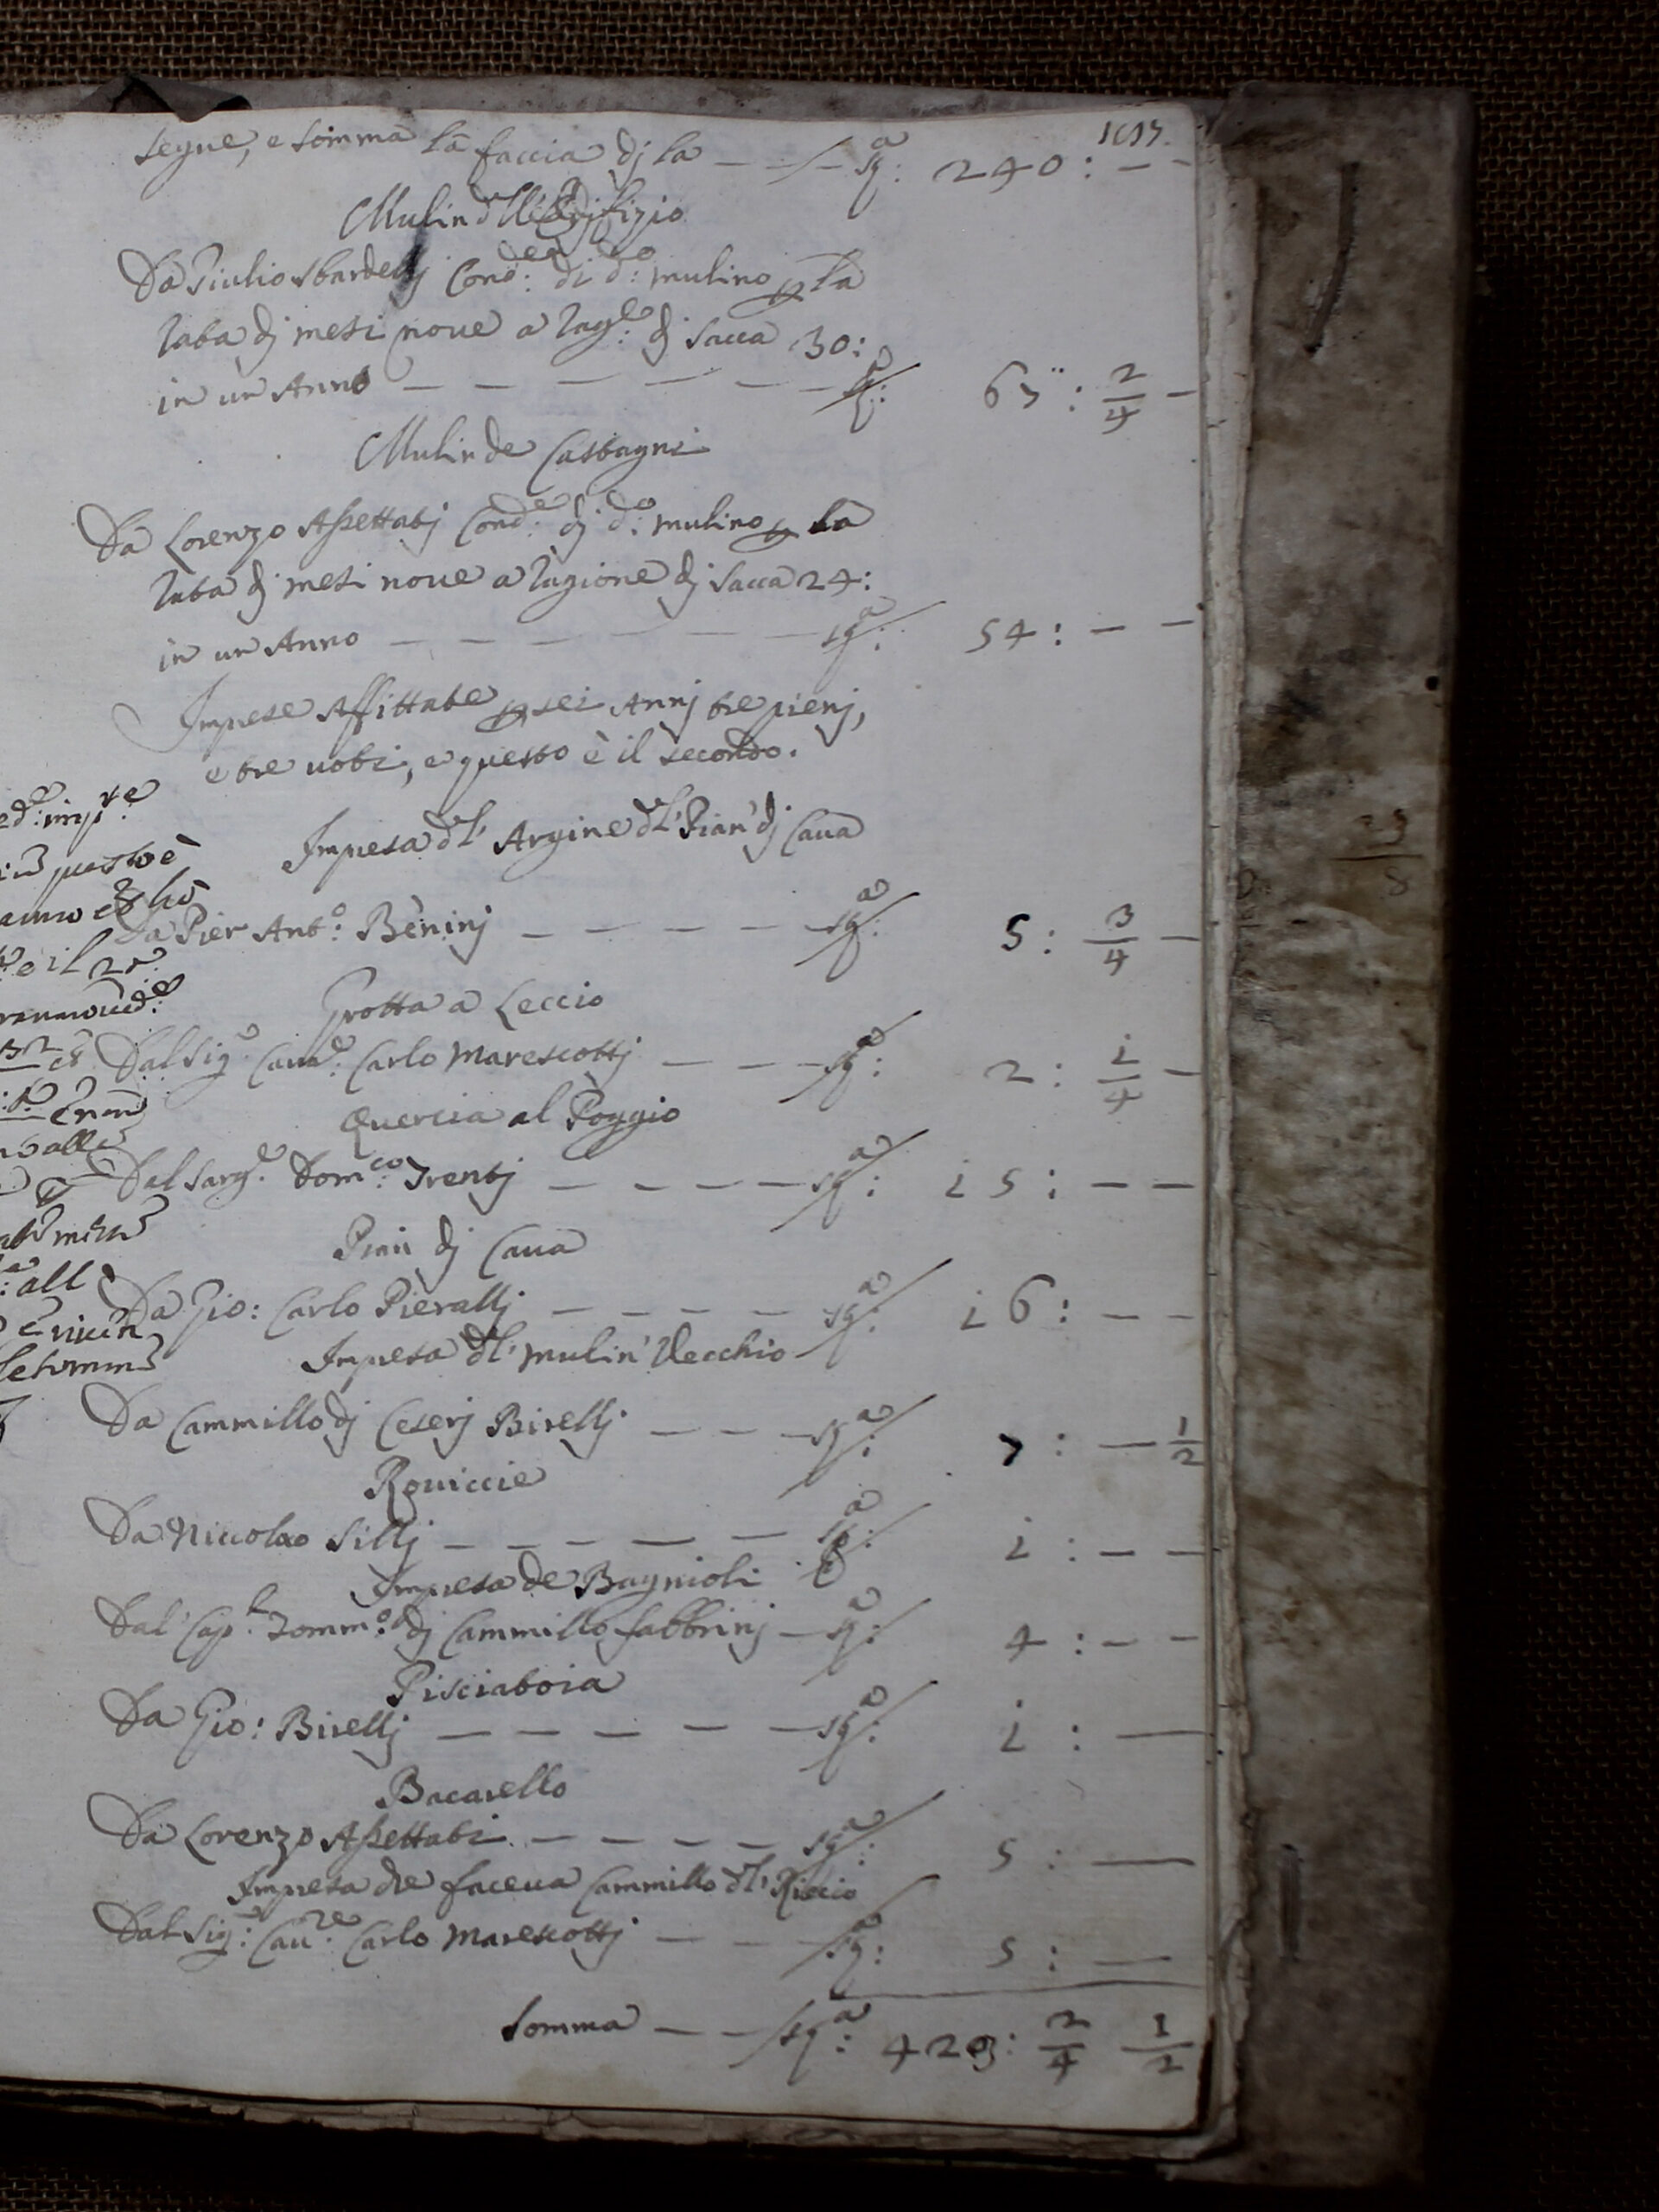 1697.
segue, e somma la faccia dj la — — sq:ª 240 : — —
Mulin dell'Edifizio
Da Giulio Sbardellj Cond:e di d:o mulino p la
rata dj mesi noue a rag:e dj sacca 30:
in un Anno — — — — — — sq:ª 67 : 2/4 —
Mulin de Castagni
Da Lorenzo Assettatj Cond:e dj d:o mulino p la
rata dj mesi noue a ragione dj sacca 24:
in un Anno — — — — — sq:ª 54 : — —
Imprese Affittate p sei Annj tre pienj,
e tre uoti, e questo è il secondo.
Impresa del' Argine del' Pian' dj Caua
Da Pier Ant:o Beninj — — — — sq:ª 5 : 3/4 —
Grotta a Leccio
Dal Sig:e Caua:e Carlo Marescottj — — sq:ª 2 : 1/4 —
Quercia al Poggio
Dal Sarg:e Dom:co Trentj — — — — sq:ª 15 : — —
Pian dj Caua
Da Gio: Carlo Pierallj — — — — sq:ª 16 : — —
Impresa del' mulin' Vecchio
Da Cammillo dj Ceserj Birellj — — — sq:ª 7 : — 1/2
Rouiccie
Da Niccolao Sillj — — — — — sq:ª 1 : — —
Impresa de Bagnioli
Dal' Cap:l Tomm:o dj Cammillo fabbrinj — sq:ª 4 : — —
Pisciatoia
Da Gio: Birellj — — — — — sq:ª 1 : —
Bacarello
Da Lorenzo Assettati — — — — sq:ª 5 : —
Impresa che faceua Cammillo del' Riccio
Dal Sig:e Cau:re Carlo Marescottj — — sq:ª 5 : —
Somma — — sq:ª 423: 2/4 1/2